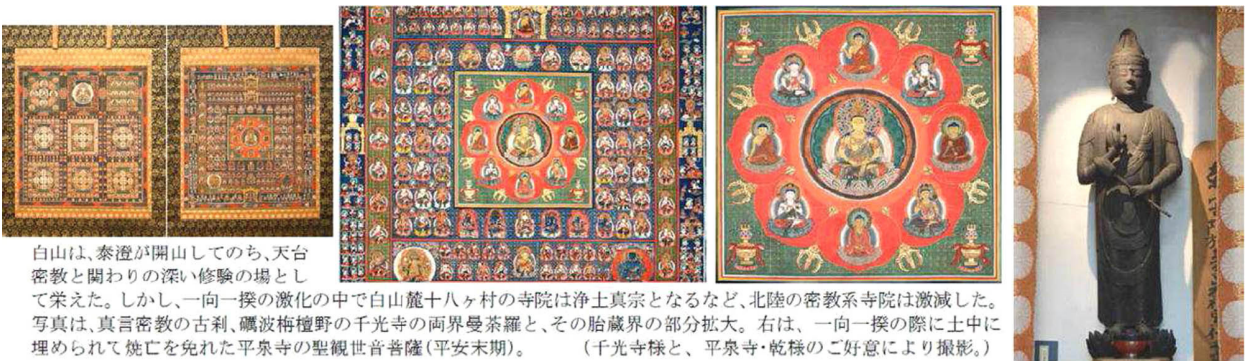 白山は、泰澄が開山してのち、天台
密教と関わりの深い修験の場とし
て栄えた。しかし、一向一揆の激化の中で白山麓十八ヶ村の寺院は浄土真宗となるなど、北陸の密教系寺院は激減した。
写真は、真言密教の古刹、礪波栴檀野の千光寺の両界曼荼羅と、その胎蔵界の部分拡大。右は、一向一揆の際に土中に
埋められて焼亡を免れた平泉寺の聖観世音菩薩(平安末期)。　　(千光寺様と、平泉寺・乾様のご好意により撮影。)